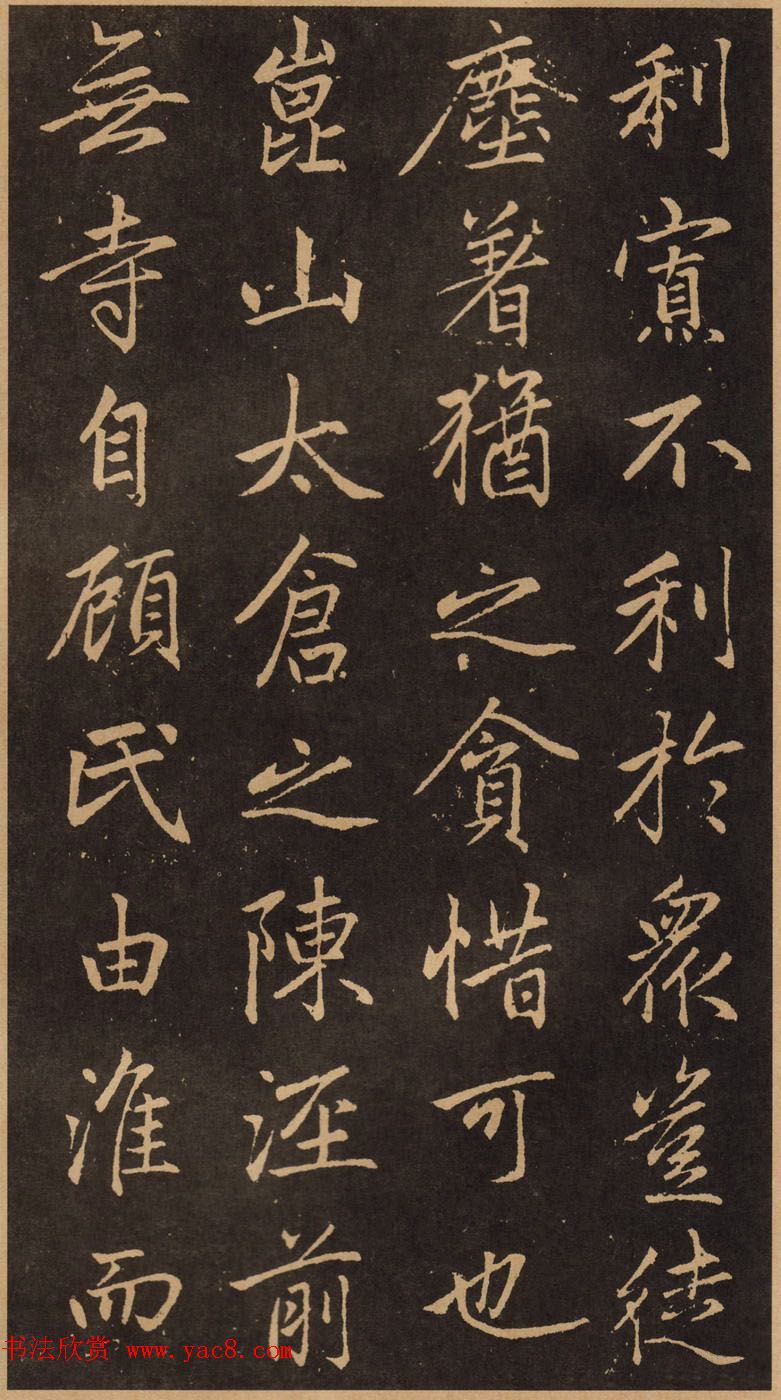 利寘不利於眾豈徒
塵着猶之貪惜可也
崑山太倉之陳涇前
無寺自顧氏由淮而
书法欣赏 www.yac8.com